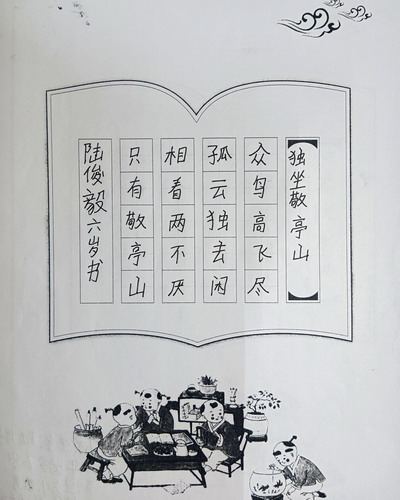 独坐敬亭山
众鸟高飞尽
孤云独去闲
相看两不厌
只有敬亭山
陆俊毅六岁书